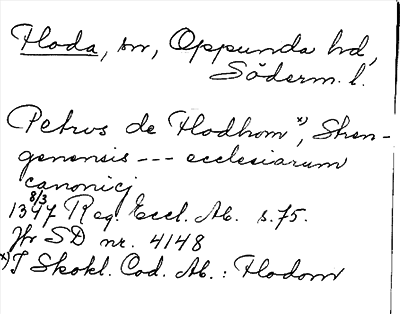 Floda, sn, Oppunda hd,
Söderm. l.
Petrus de Flodhom x), Stren-
genensis --- ecclesiarum
canonicj
8/3
1347 Reg. Eccl. Ab. s. 75.
Jfr SD nr. 4148
x) I Skokl. Cod. Ab. : Flodom